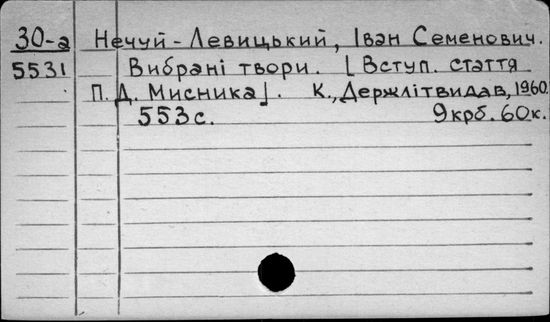 30-а Нечуй-Левицький, Іван Семенович.
5531 Вибрані твори. [Вступ. стаття
П. Д. Мисника]. К., Держлітвидав, 1960.
553 с. 9 крб. 60 к.